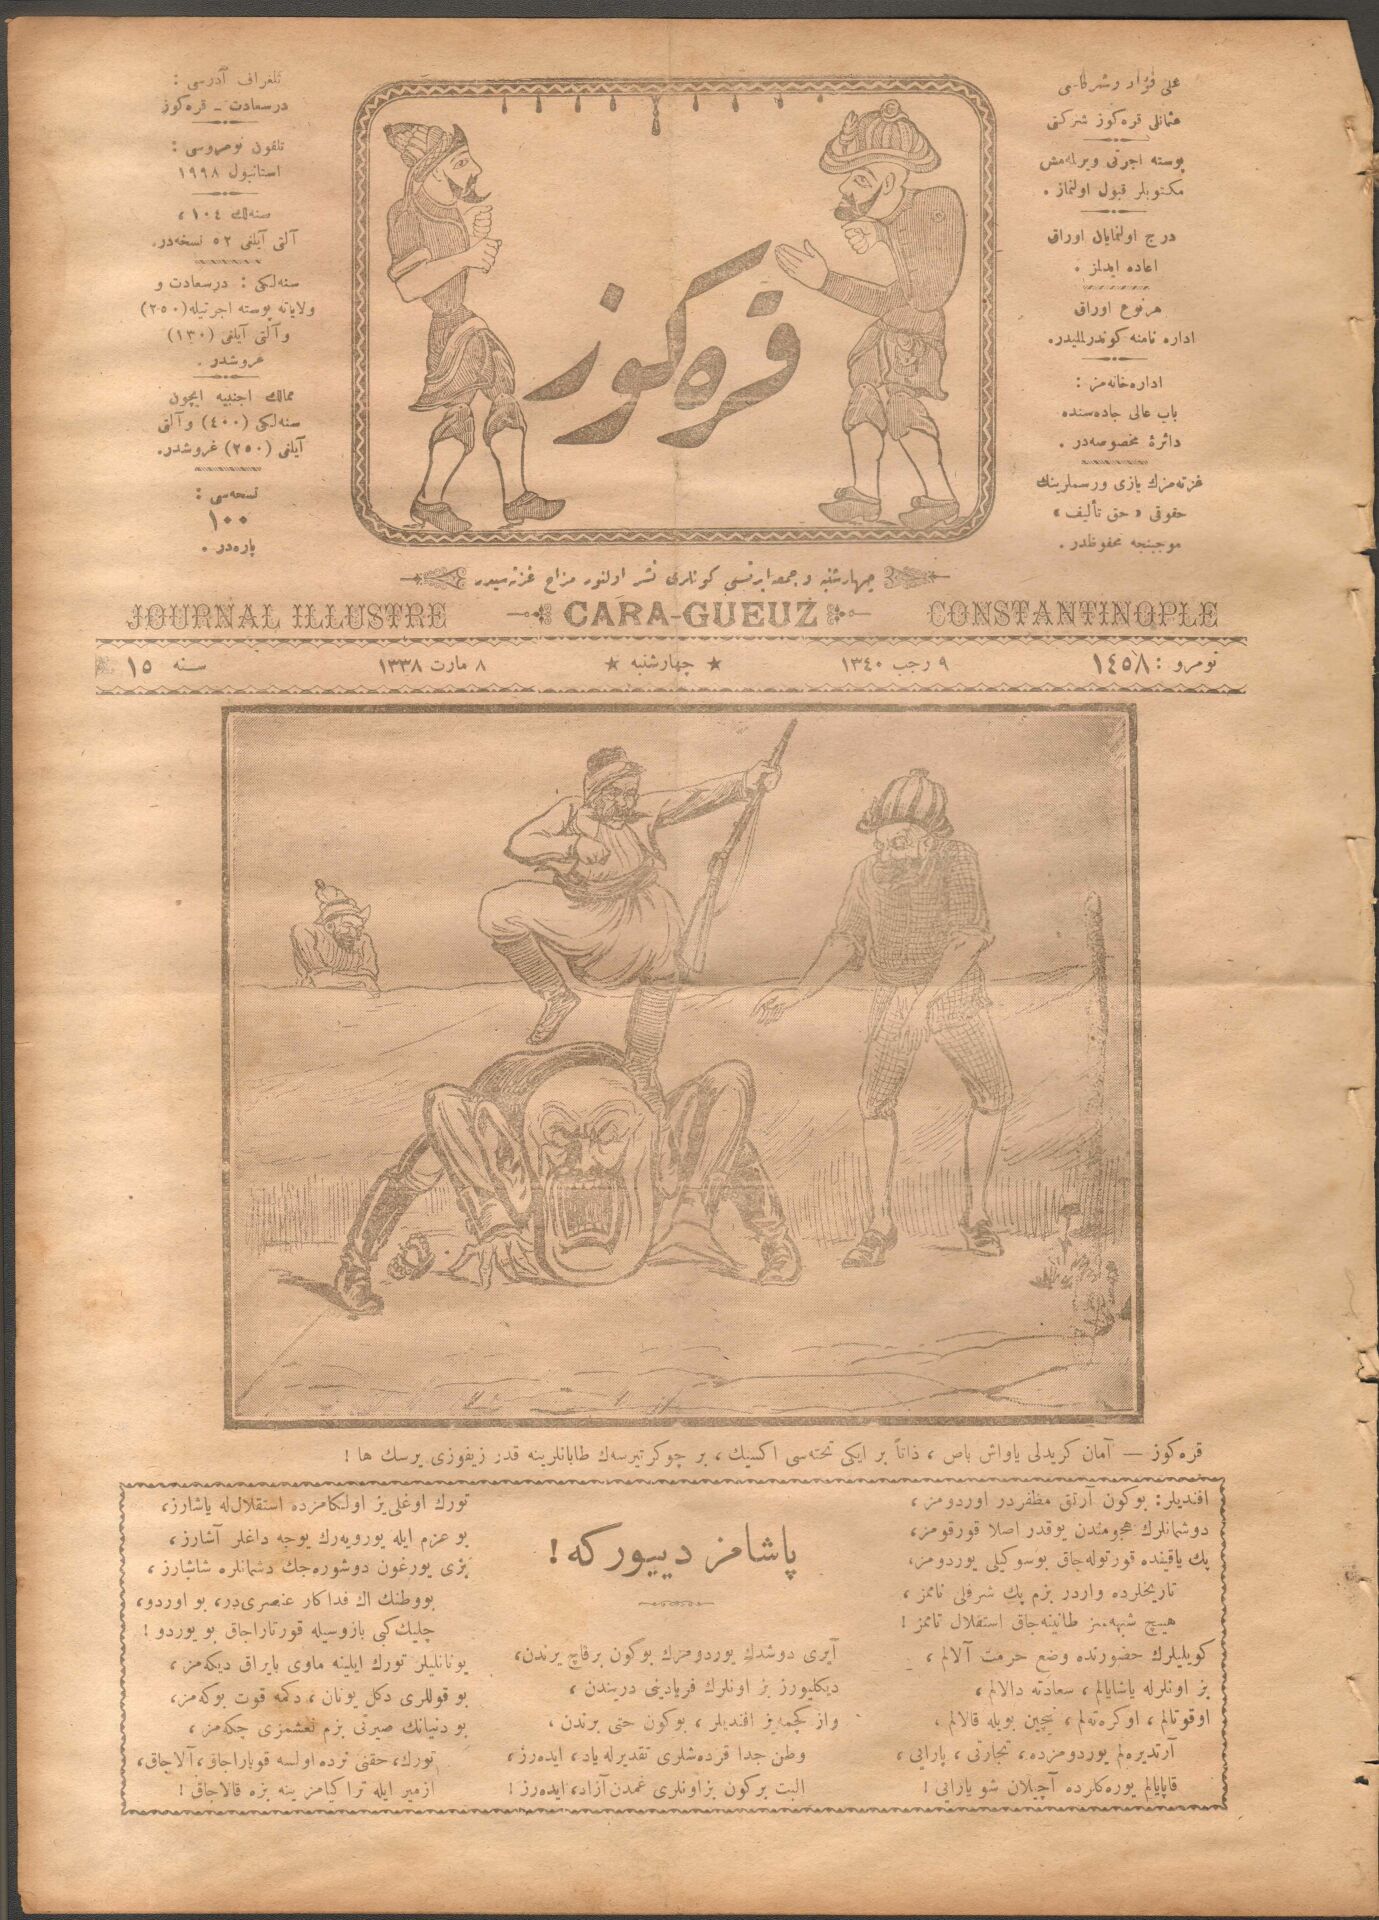 علی فؤاد و شركاسی
عثمانلی قره‌كوز شركتی
پوسته اجرتی ویرلمه‌مش
مكتوبلر قبول اولنماز .
درج اولنمایان اوراق
اعاده ایدلمز .
هرنوع اوراق
اداره نامنه كوندرلمليدر.
اداره‌خانه‌مز :
باب عالی جاده‌سنده
دائرهٔ مخصوصه‌در .
غزته‌مزك یازی و رسملرینك
حقوقی « حق تألیف »
موجبنجه محفوظدر .
قره‌كوز
تلغراف آدرسی :
درسعادت ـ قره‌كوز
تلفون نومروسی :
استانبول ١٩٩٨
سنه‌لك ١٠٤ ،
آلتی آیلغی ٥٢ نسخه‌در.
سنه‌لكی : درسعادت و
ولایاته پوسته اجرتیله (٢٥٠)
و آلتی آیلغی (١٣٠)
غروشدر .
ممالك اجنبیه ایچون
سنه‌لكی (٤٠٠) و آلتی
آیلغی (٢٥٠) غروشدر.
نسخه‌سی :
١٠٠
پاره‌در .
چهارشنبه و جمعه‌ایرتسی كونلری نشر اولنور مزاح غزته‌سیدر
JOURNAL ILLUSTRE CARA-GUEUZ CONSTANTINOPLE
نومرو : ١٤٥٨ ٩ رجب ١٣٤٠ ★ چهارشنبه ★ ٨ مارت ١٣٣٨ سنه ١٥
قره‌كوز — آمان كریدلی یاواش باص ، ذاتاً بر ایكی تخته‌سی اكسیك ، بر چوكرتیرسه‌ك طابانلرینه قدر زیفوزی یرسك ها !
پاشامز دییوركه !
افندیلر: بوكون آرتق مظفردر اوردومز ،
دوشمانلرك هجومندن یوقدر اصلا قورقومز ،
پك یاقینده قورتوله‌جاق بوسوكیلی یوردومز،
تاریخلرده واردر بزم پك شرفلی نامز ،
هیچ شبهه‌سز طانینه‌جاق استقلال تامز !
كویلیلرك حضورنده وضع حرمت آلالم ،
بز اونلرله یاشایالم ، سعادته دالالم ،
اوقوتالم ، اوكره‌ته‌لم ، نیچین بویله قالالم ،
آرتدیره‌لم یوردومزده، تجارتی ، پارایی ،
قاپایالم یوره‌كلرده آچیلان شو یارایی !
آیری دوشدك یوردومزك بوكون برقاچ یرندن،
دیكلیورز بز اونلرك فریادینی دریندن ،
واز كچمه‌یز افندیلر ، بوكون حتی برندن ،
وطن جدا قرده‌شلری تقدیرله یاد، ایده‌رز ،
البت بركون بز اونلری غمدن آزاد، ایده‌رز !
تورك اوغلی‌یز اولكامزده استقلال‌له یاشارز،
بو عزم ایله یورویه‌رك یوجه داغلر آشارز ،
بزی یورغون دوشوره‌جك دشمانلره شاشارز ،
بووطنك اك فداكار عنصری‌در، بو اوردو ،
چلیك كبی بازوسیله قورتاراجاق بو یوردو !
یونانلیلر تورك ایلینه ماوی بایراق دیكه‌مز ،
بو قوللری دكل یونان ، دكمه قوت بوكه‌مز،
بو دنیانك صیرتی بزم نعشمزی چكه‌مز ،
تورك، حقنی نرده اولسه قوپاراجاق، آلاجاق،
ازمیر ایله تراكیامز ینه بزه قالاجاق !